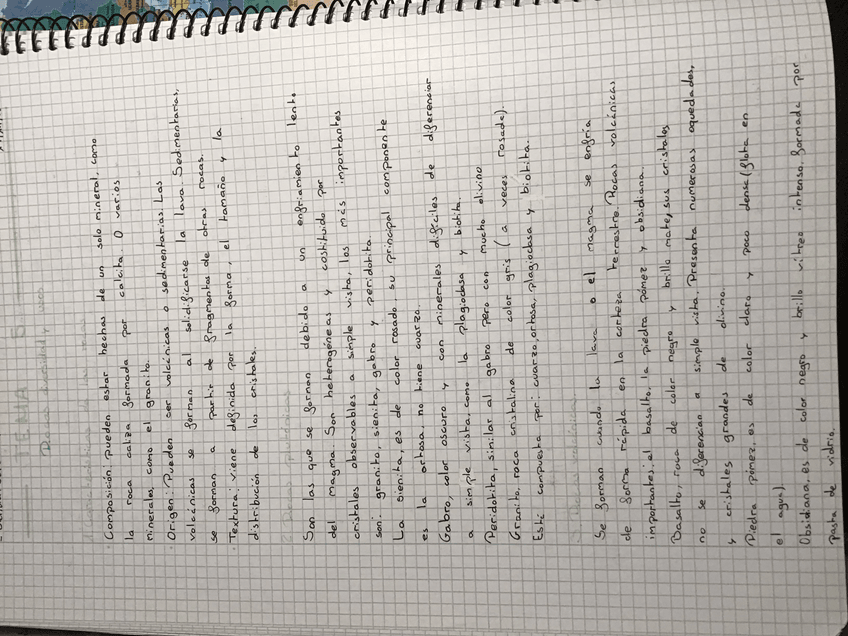 · Composición: pueden estar hechas de un solo mineral, como
la roca caliza formada por calcita. O varios
minerales como el granito.
· Origen: Pueden ser volcánicas o sedimentarias. Las
volcánicas se forman al solidificarse la lava. Sedimentarias,
se forman a partir de fragmentos de otras rocas.
· Textura: viene definida por la forma, el tamaño y la
distribución de los cristales.
Son las que se forman debido a un enfriamiento lento
del magma. Son heterogéneas y costituido por
cristales observables a simple vista, los más importantes
son: granito, sienita, gabro y peridotita
La sienita, es de color rosado, su principal componente
es la ortosa, no tiene cuarzo.
Gabro, color oscuro y con minerales difíciles de diferenciar
a simple vista, como la plagiodasa y biotita.
Peridotita, similar al gabro pero con mucho olivino
Granito, roca cristalina de color gris (a veces rosada).
Esté compuesta por: cuarzo, ortosa, plagiodasa y biotita.
Se forman cuando la lava o el magma se enfría
de forma rápida en la corteza terrestre. Rocas volcánicas
importantes: el basalto, la piedra pómez y obsidiana.
Basalto, roca de color negro y brillo mate, sus cristales
no se diferencian a simple vista. Presenta numerosas oquedades,
y cristales grandes de olivino.
Piedra pómez, es de color claro y poco densa (flota en
el agua).
Obsidiana, es de color negro y brillo vítreo intenso. Formada por
pasta de vidrio.